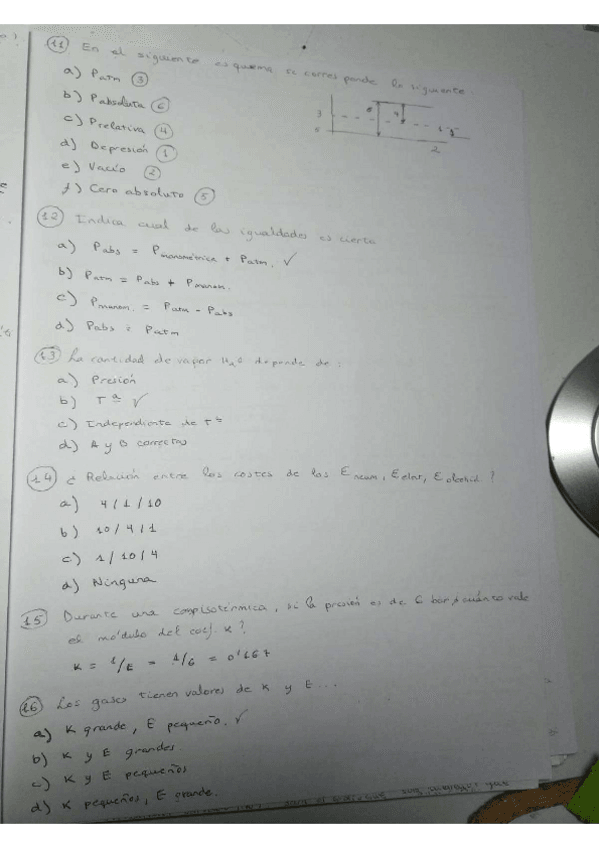 11 En el siguiente esquema se corresponde lo siguiente:
a) Patm 3
b) Pabsoluta 6
c) Prelativa 4
d) Depresión 1
e) Vacío 2
f) Cero absoluto 5
3
5
6
4
1
2
12 Indica cual de las igualdades es cierta
a) Pabs = Pmanométrica + Patm. ✓
b) Patm = Pabs + Pmanom.
c) Pmanom. = Patm - Pabs
d) Pabs = Patm
13 La cantidad de vapor H2O depende de:
a) Presión
b) Tª ✓
c) Independiente de Tª
d) A y B correctas
14 ¿Relación entre los costes de las Eneum, Eeléct, ?
a) 4/1/10
b) 10/4/1
c) 1/10/4
d) Ninguna
15 Durante una comp. isotérmica, si la presión es de 6 bar ¿cuánto vale
el módulo del coef. K?
K = 1/E = 1/6 = 0'167
16 Los gases tienen valores de K y E...
a) K grande, E pequeño. ✓
b) K y E grandes.
c) K y E pequeños
d) K pequeños, E grande.